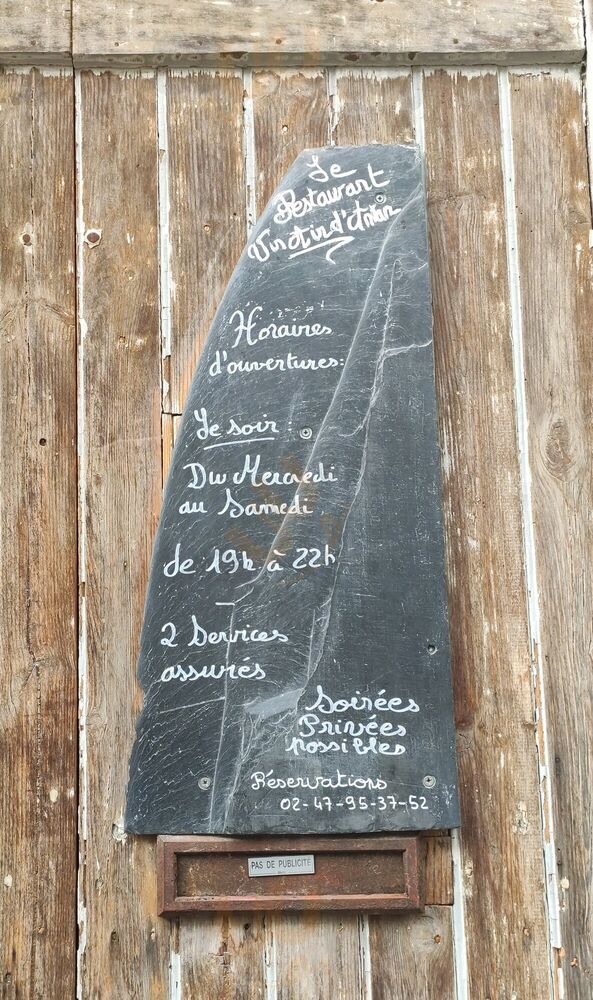 Le
Restaurant
Vincent
Horaires
d'ouvertures:
Le soir :
Du Mercredi
au Samedi
de 19h à 22h
2 Services
assurés
Soirées
Privées
possibles
Réservations
02-47-95-37-52
PAS DE PUBLICITÉ